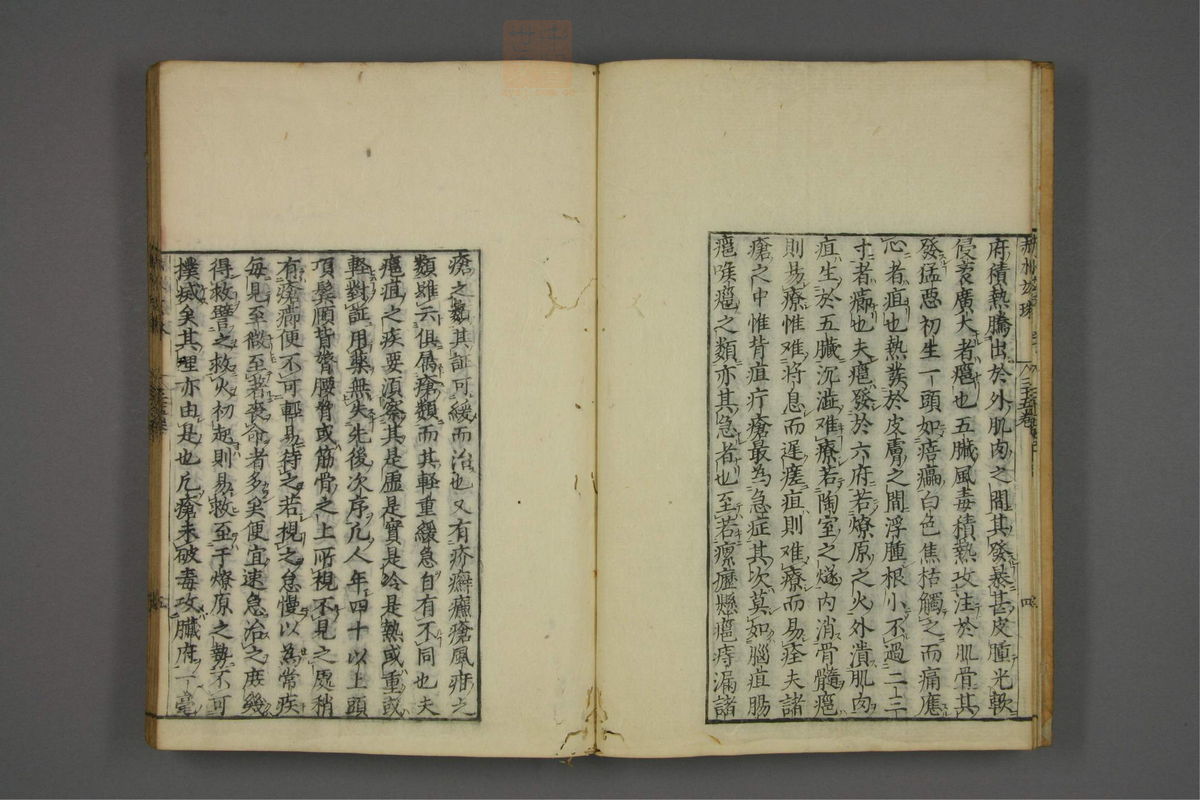 府積熱騰出於外肌肉之間其發暴甚皮腫光軟
侵衮廣大者癰也五臟風毒積熱攻注於肌骨其
發猛惡初生一頭如㾦㿔白色焦枯觸之而痛應
心者疽也熱發於皮膚之間浮腫根小不過二三
寸者癤也夫癰發於六府若燎原之火外潰肌肉
疽生於五臟沉澁难療若陶室之燧内消骨髓癰
則易療惟难將息而遲瘥疽則难療而易痊夫諸
瘡之中惟背疽疔瘡最為急症其次莫如腦疽腸
癰喉癰之類亦其急者也至若瘰癧懸癰痔漏諸
瘡之類其証可緩而治也又有疥癬癘瘡風疳之
類雖云俱屬瘡類而其軽重緩急自有不同也夫
癰疽之疾要湏察其是虛是實是冷是熱或重或
軽對証用藥無失先後次序凢人年四十以上頭
項鬂頥背膂腰脅或筋骨之上所視不見之處稍
有瘡癤便不可輕易待之若視之怠慢以為常疾
每見至微至著喪命者多矣便宜速急治之庻幾
得救譬之救火初起則易救至于燎原之勢不可
撲烕矣其理亦由是也凢瘡未破毒攻臟府一毫